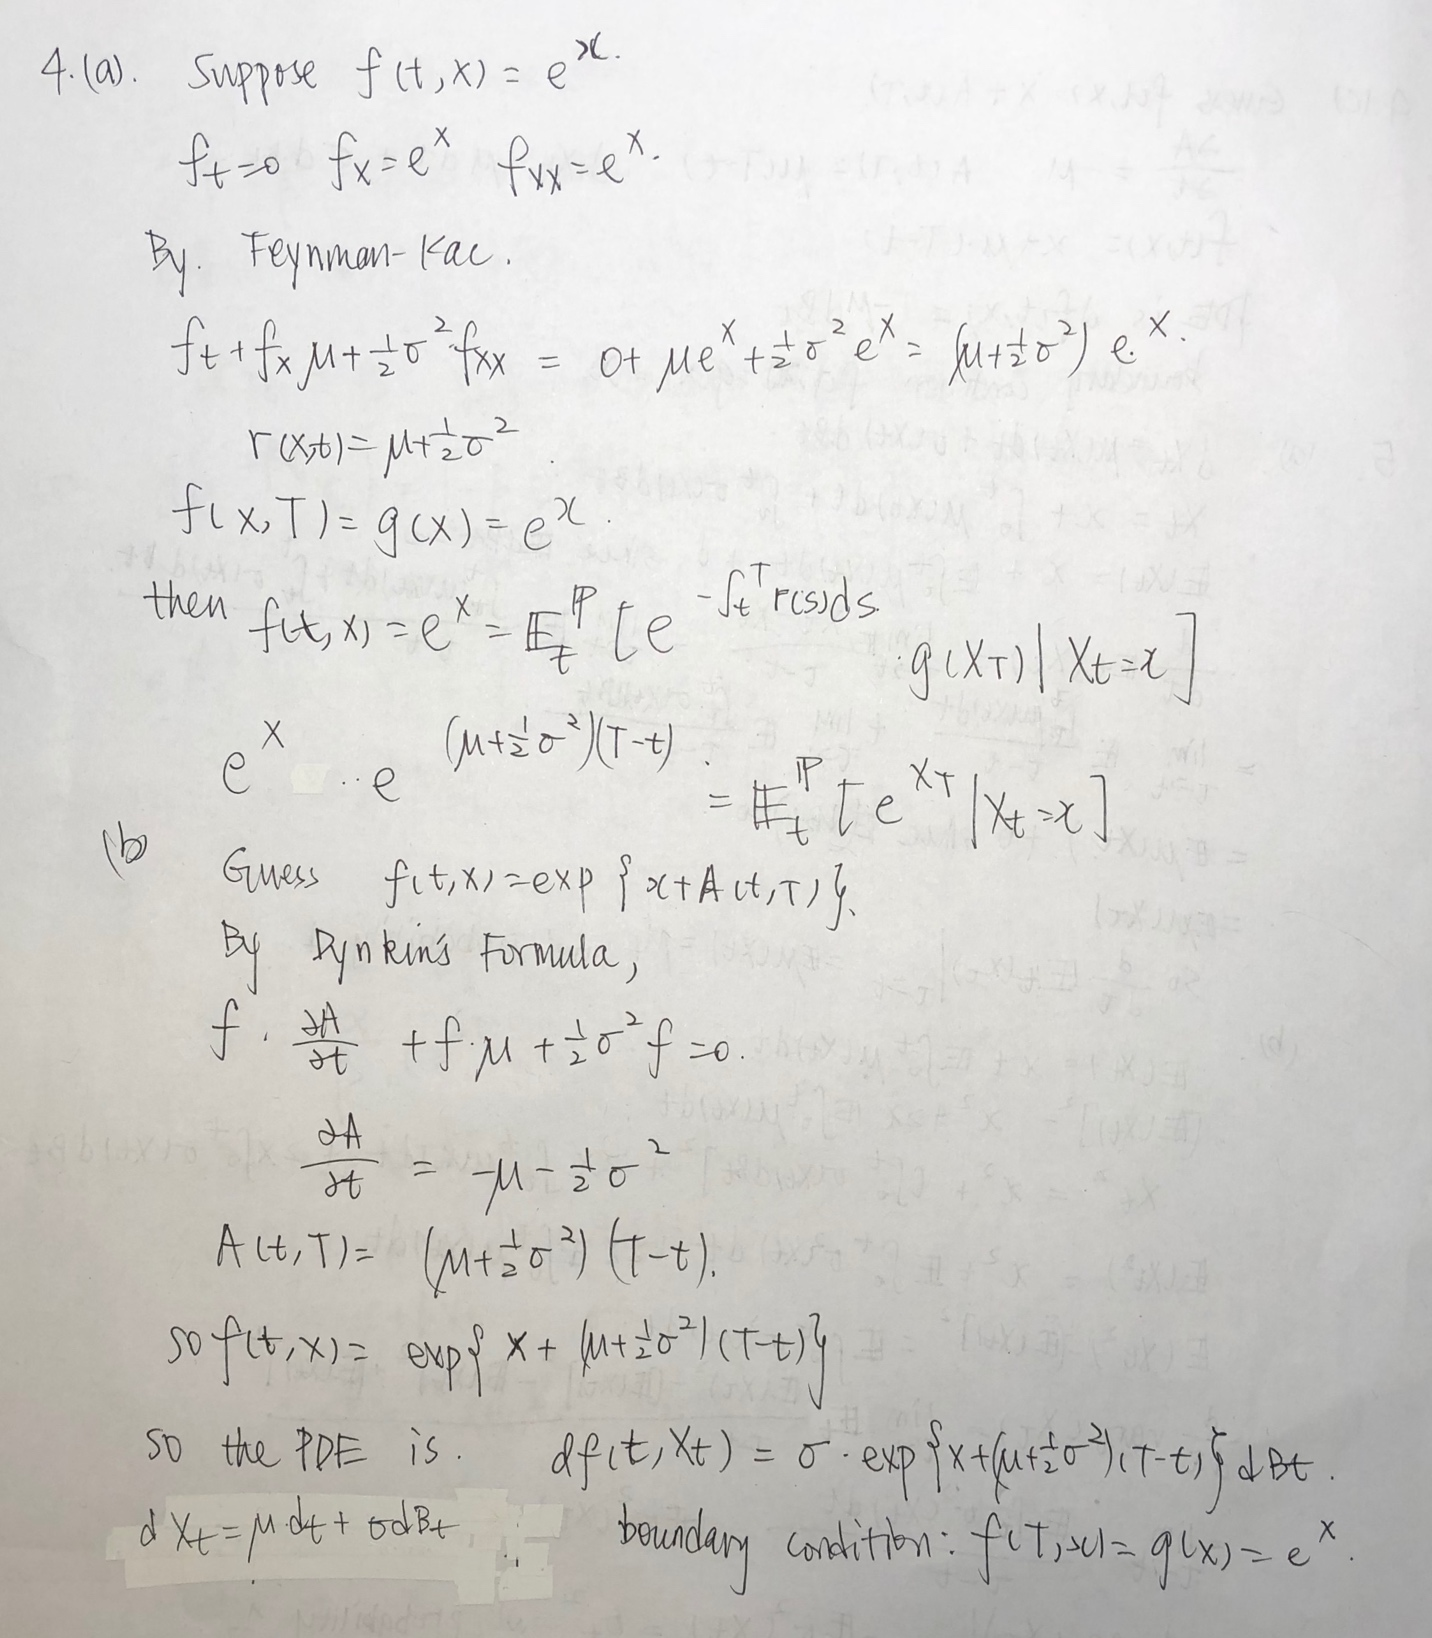 4.(a). Suppose f(t,x) = e^x.
f_t=0 f_x=e^x f_xx=e^x.
By. Feynman-Kac.
f_t + f_x μ + ½σ² f_xx = 0 + μe^x + ½σ²e^x = (μ+½σ²) e^x.
r(x,t) = μ+½σ².
f(x,T) = g(x) = e^x.
then f(t,x) = e^x = 𝔼_t^ℙ [e^{-∫_t^T r(s)ds} · g(X_T) | X_t=x]
e^x ·· e^{(μ+½σ²)(T-t)} = 𝔼_t^ℙ [e^{X_T} | X_t=x]
(b)
Guess f(t,x) = exp{x+A(t,T)}.
By Dynkin's Formula,
f · ∂A/∂t + f·μ + ½σ² f = 0.
∂A/∂t = -μ - ½σ²
A(t,T) = (μ+½σ²) (T-t).
so f(t,x) = exp{x + (μ+½σ²)(T-t)}
so the PDE is. df(t,X_t) = σ · exp{x+(μ+½σ²)(T-t)} dB_t.
dX_t = μ·dt + σdB_t boundary condition: f(T,x) = g(x) = e^x.